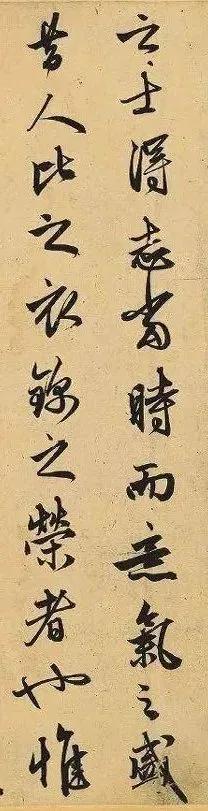 之士得志當時而意氣之盛
昔人比之衣錦之榮者也惟